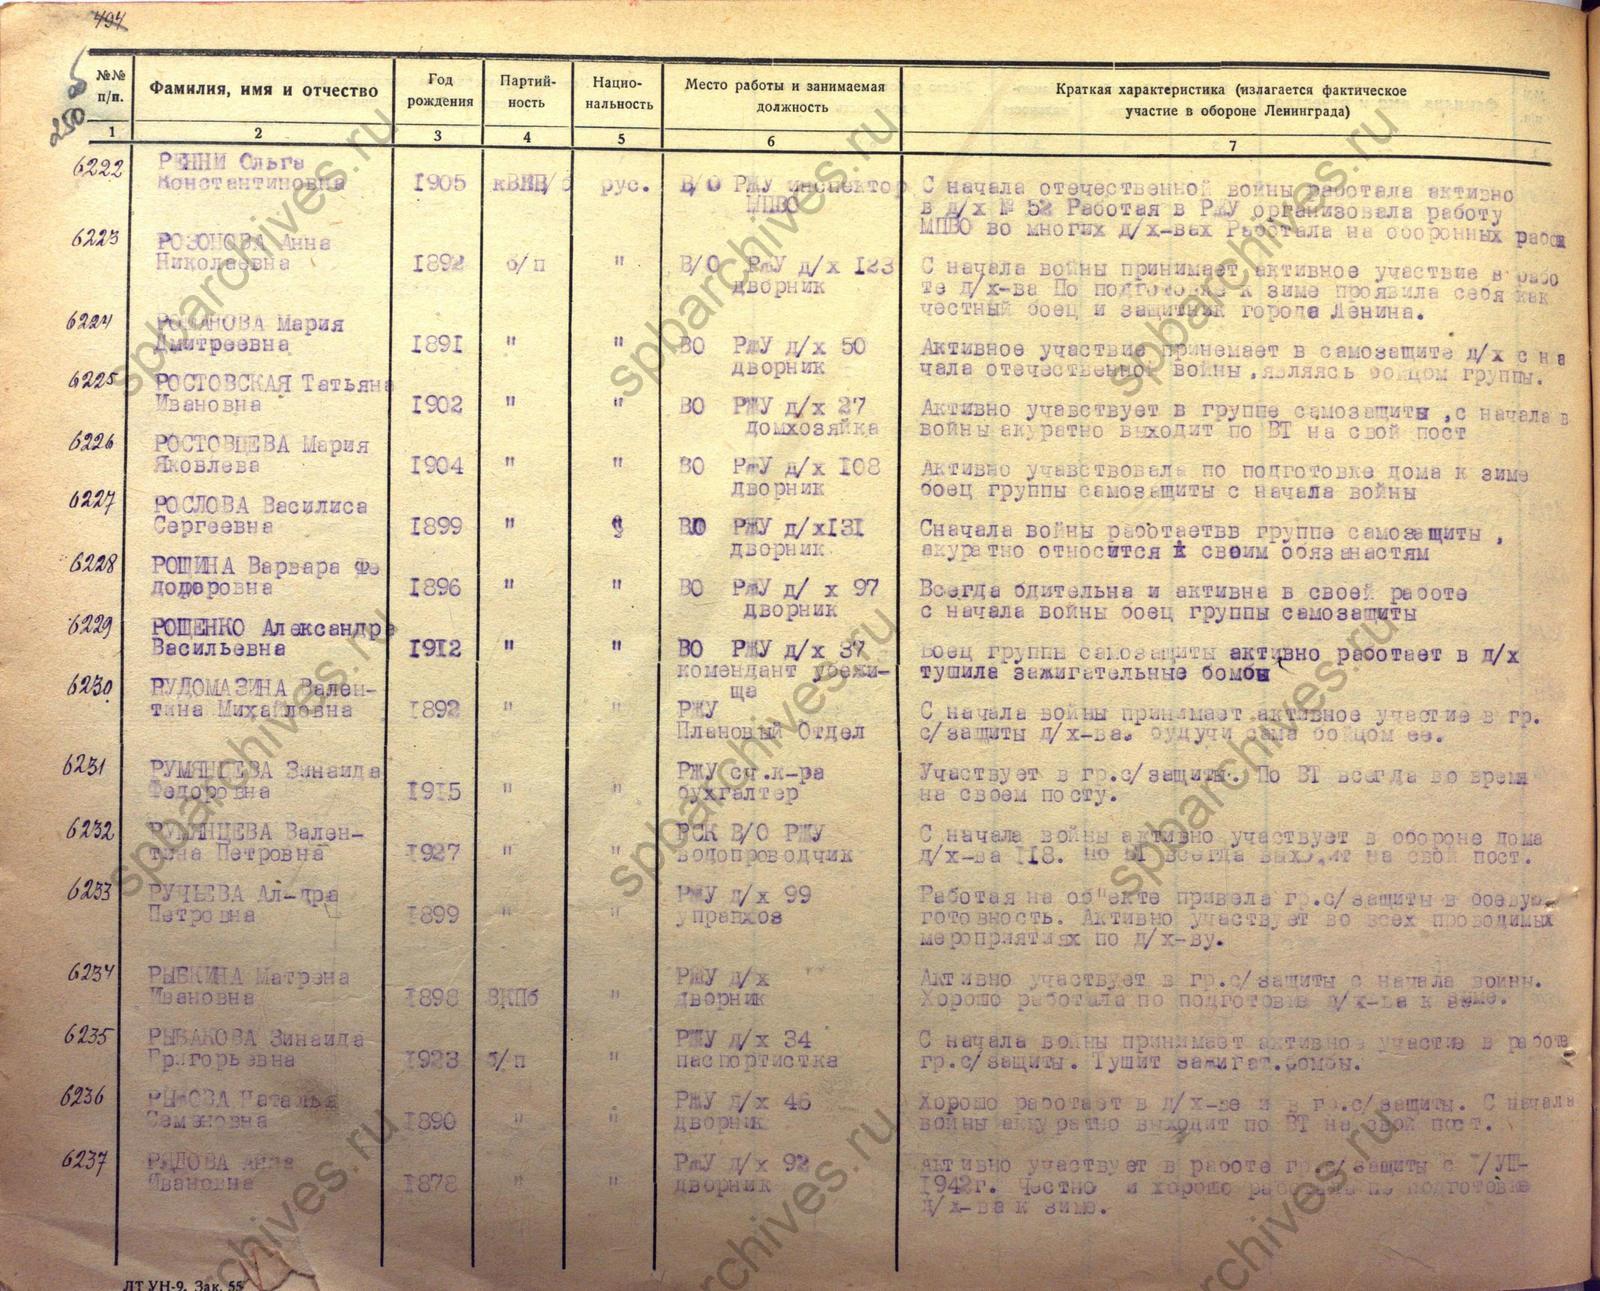 494
250 об
№№ п/п. Фамилия, имя и отчество Год рождения Партий-ность Нацио-нальность Место работы и занимаемая должность Краткая характеристика (излагается фактическое участие в обороне Ленинграда)
1 2 3 4 5 6 7
6222 РЕННИ Ольга
Константиновна 1905 рус. В/О РЖУ инспектор С начала отечественной войны работала активно
МПВО в д/х № 52 Работая в РЖУ организовала работу
МПВО во многих д/х-вах Работала на оборонных
6223 РОЗОНОВА Анна
Николаевна 1892 б/п " В/О РЖУ д/х 123 С начала войны принимает активное участие в рабо
дворник те д/х-ва По подготовке к зиме проявила себя как
честный боец и защитник города Ленина.
6224 РОМАНОВА Мария
Дмитреевна 1891 " " ВО РЖУ д/х 50 Активное участвие принемает в самозащите д/х с на
дворник чала отечественной войны ,являясь бойцом группы.
6225 РОСТОВСКАЯ Татьяна
Ивановна 1902 " " ВО РЖУ д/х 27 Активно учавствует в группе самозащиты ,с начала в
домхозяйка войны акуратно выходит по ВТ на свой пост
6226 РОСТОВЦЕВА Мария
Яковлева 1904 " " ВО РЖУ д/х 108 Активно учавствовала по подготовке дома к зиме
дворник боец группы самозащиты с начала войны
6227 РОСЛОВА Василиса
Сергеевна 1899 " ВО РЖУ д/х131 Сначала войны работаетвв группе самозащиты ,
дворник акуратно относится к своим обязанастям
6228 РОЩИНА Варвара Фе
доровна 1896 " " ВО РЖУ д/ х 97 Всегда бдительна и активна в своей работе
дворник с начала войны боец группы самозащиты
6229 РОЩЕНКО Александра
Васильевна 1912 " " ВО РЖУ д/х 37 Боец группы самозащиты активно работает в д/х
комендант убежи- тушила зажигательные бомбы
ща
6230 РУДОМАЗИНА Вален-
тина Михайловна 1892 " " РЖУ С начала войны принимает активное участие в гр.
Плановый Отдел с/защиты д/х-ва. будучи сама бойцом ее.
6231 РУМЯНЦЕВА Зинаида РЖУ сч.к-ра Участвует в гр.с/защиты. По ВТ всегда во время
Федоровна 1915 " " бухгалтер на своем посту.
6232 РУМЯНЦЕВА Вален- РСК В/О РЖУ С начала войны активно участвует в обороне дома
тина Петровна 1927 " " водопроводчик д/х-ва 118. По ВТ всегда выходит на свой пост.
6233 РУЧЬЕВА Ал-дра РЖУ д/х 99 Работая на об"екте привела гр.с/защиты в боевую
Петровна 1899 " " управхоз готовность. Активно участвует во всех проводимых
мероприятиях по д/х-ву.
6234 РЫБКИНА Матрена РЖУ д/х Активно участвует в гр.с/защиты с начала войны.
Ивановна 1898 ВКПб " дворник Хорошо работала по подготовке д/х-ва к зиме.
6235 РЫБАКОВА Зинаида РЖУ д/х 34 С начала войны принимает активное участие в работе
Григорьевна 1923 б/п " паспортистка гр.с/защиты. Тушит зажигат.бомбы.
6236 Наталья РЖУ д/х 46 Хорошо работает в д/х-ве и в гр.с/защиты. С начала
Семеновна 1890 " " дворник войны аккуратно выходит по ВТ на свой пост.
6237 РЯДОВА Анна РЖУ д/х 92 Активно участвует в работе гр.с/защиты с
Ивановна 1878 " " дворник 1942г. Честно и хорошо по подготовке
д/х-ва к зиме.
ЛТ УН-9. Зак. 55
spbarchives.ru